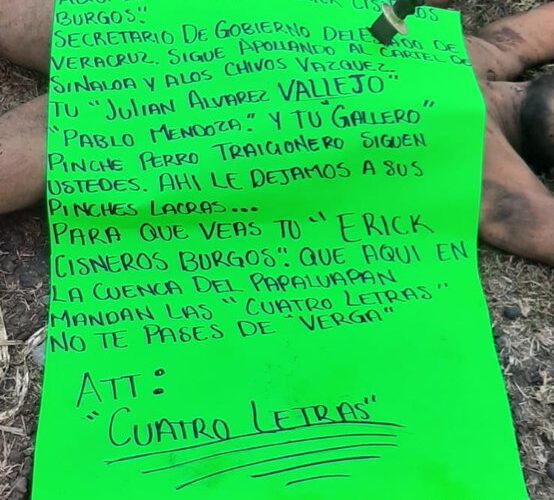 CISNEROS
BURGOS".
SECRETARIO DE GOBIERNO DELEGADO DE
VERACRUZ. SIGUE APOLLANDO AL CARTEL DE
SINALOA Y ALOS CHIVOS VAZQUEZ.
TU "JULIAN ALVAREZ VALLEJO"
"PABLO MENDOZA." Y TU "GALLERO"
PINCHE PERRO TRAICIONERO SIGUEN
USTEDES. AHI LE DEJAMOS A SUS
PINCHES LACRAS...
PARA QUE VEAS TU "ERICK
CISNEROS BURGOS". QUE AQUI EN
LA CUENCA DEL PAPALUAPAN
MANDAN LAS "CUATRO LETRAS"
NO TE PASES DE "VERGA"
ATT:
"CUATRO LETRAS"